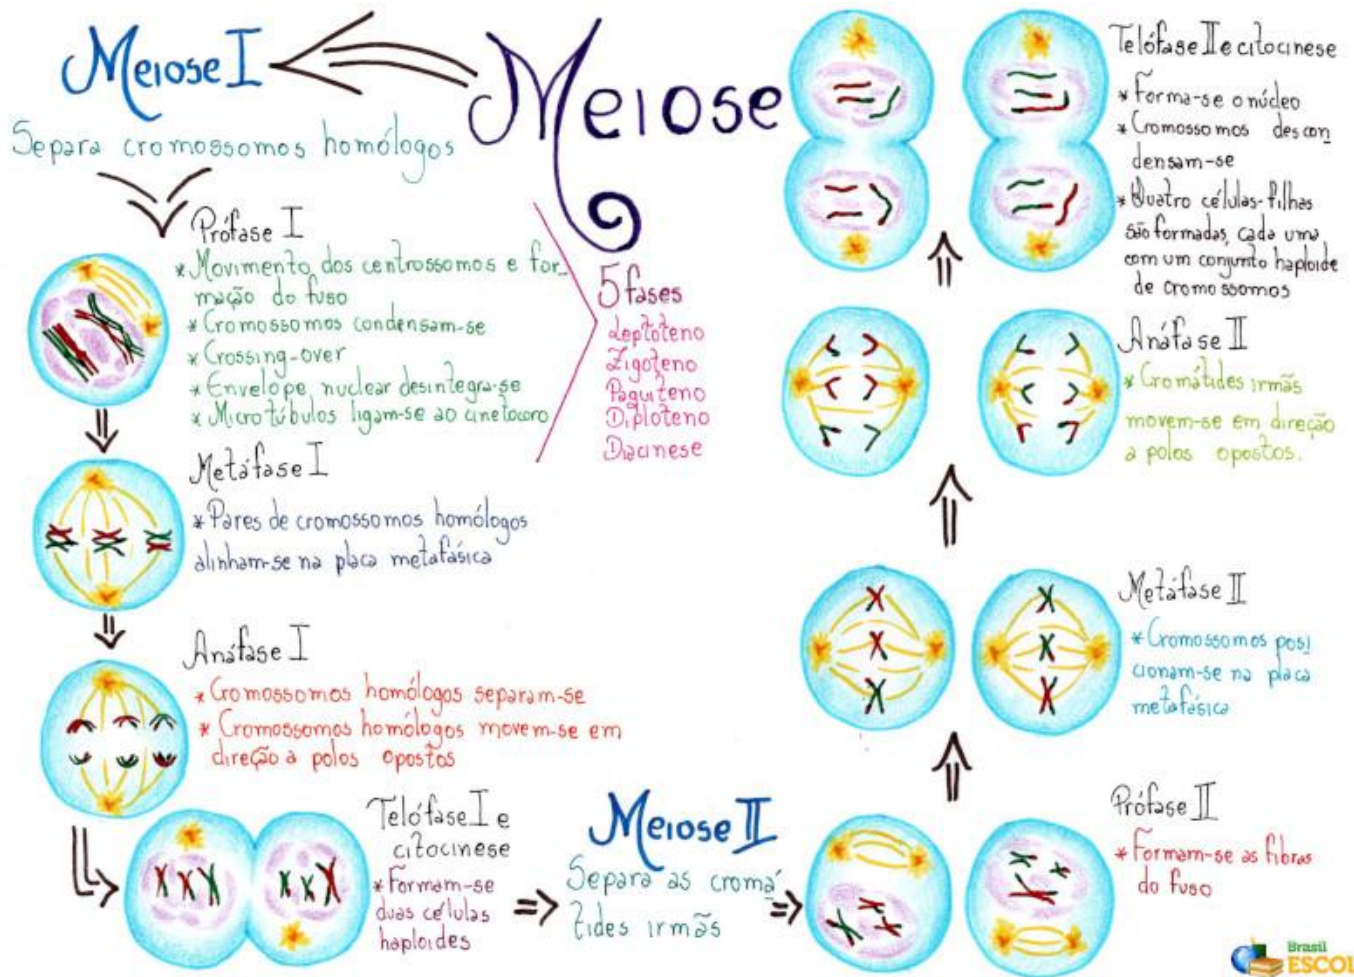 Meiose
Meiose I
Separa cromossomos homólogos
Prófase I
* Movimento dos centrossomos e for_
mação do fuso
* Cromossomos condensam-se
* Crossing-over
* Envelope nuclear desintegra-se
* Microtúbulos ligam-se ao cinetocoro
5 fases
Leptóteno
Zigóteno
Paquíteno
Diplóteno
Diacinese
Metáfase I
* Pares de cromossomos homólogos
alinham-se na placa metafásica
Anáfase I
* Cromossomos homólogos separam-se
* Cromossomos homólogos movem-se em
direção a polos opostos
Telófase I e
citocinese
* Formam-se
duas células
haploides
Meiose II
Separa as cromá
tides irmãs
Prófase II
* Formam-se as fibras
do fuso
Metáfase II
* Cromossomos posi
cionam-se na placa
metafásica
Anáfase II
* Cromátides irmãs
movem-se em direção
a polos opostos.
Telófase II e citocinese
* Forma-se o núcleo
* Cromossomos descon
densam-se
* Quatro células-filhas
são formadas, cada uma
com um conjunto haploide
de cromossomos
Brasil
ESCOL